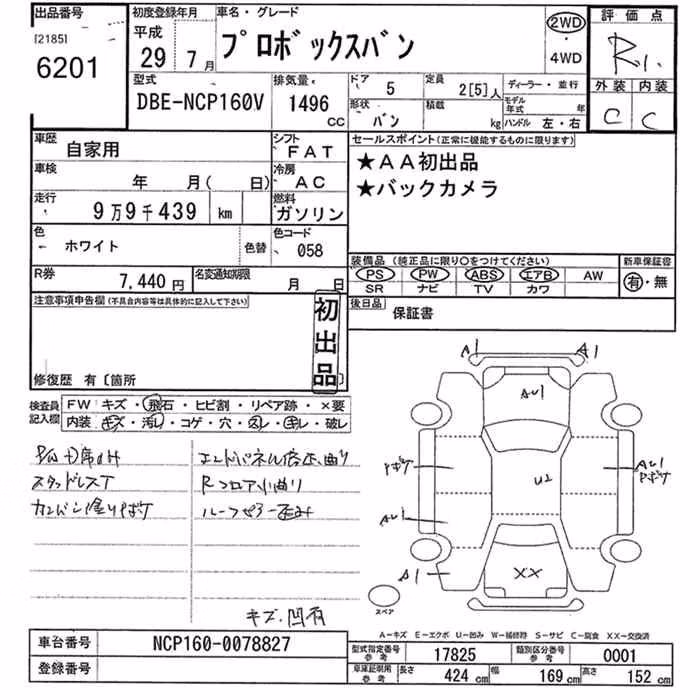 出品番号
[2185]
6201
初度登録年月
平成
29 7月
車名・グレード
プロボックスバン
2WD
・
4WD
評価点
R1
外装 内装
C C
型式
DBE-NCP160V
排気量
1496
CC
ドア 5
定員 2[5]人
ディーラー・並行
形状 バン
積載 kg
モデル年式 年
ハンドル 左・右
車歴 自家用
シフト FAT
車検 年 月( 日)
冷房 AC
走行 9万9千439 km
燃料 ガソリン
色 ホワイト
色替
色コード 058
R券 7,440円
名変通知期限 月 日
セールスポイント(正常に機能するものに限ります)
★AA初出品
★バックカメラ
装備品(純正品に限り○をつけてください)
新車保証書
PS PW ABS エアB AW
SR ナビ TV カワ
有・無
後日品 保証書
注意事項申告欄(不具合内容等は具体的に記入して下さい)
初出品
修復歴 有[箇所 ]
検査員記入欄
FW キズ・飛石・ヒビ割・リペア跡・×要
内装 キズ・汚レ・コゲ・穴・スレ・キレ・破レ
スタッドレスT
エンドパネル修正、曲り
Rフロア小曲り
キズ、凹有
A1 A1
AU1
Pボケ
U2
AU1
Pボケ
AU1
A1
XX
スペア
A−キズ E−エクボ U−凹み W−補修跡 S−サビ C−腐食 XX−交換済
車台番号 NCP160-0078827
登録番号
型式指定番号 参考 17825
類別区分番号 参考 0001
車庫証明用 参考 長さ 424 cm 幅 169 cm 高さ 152 cm